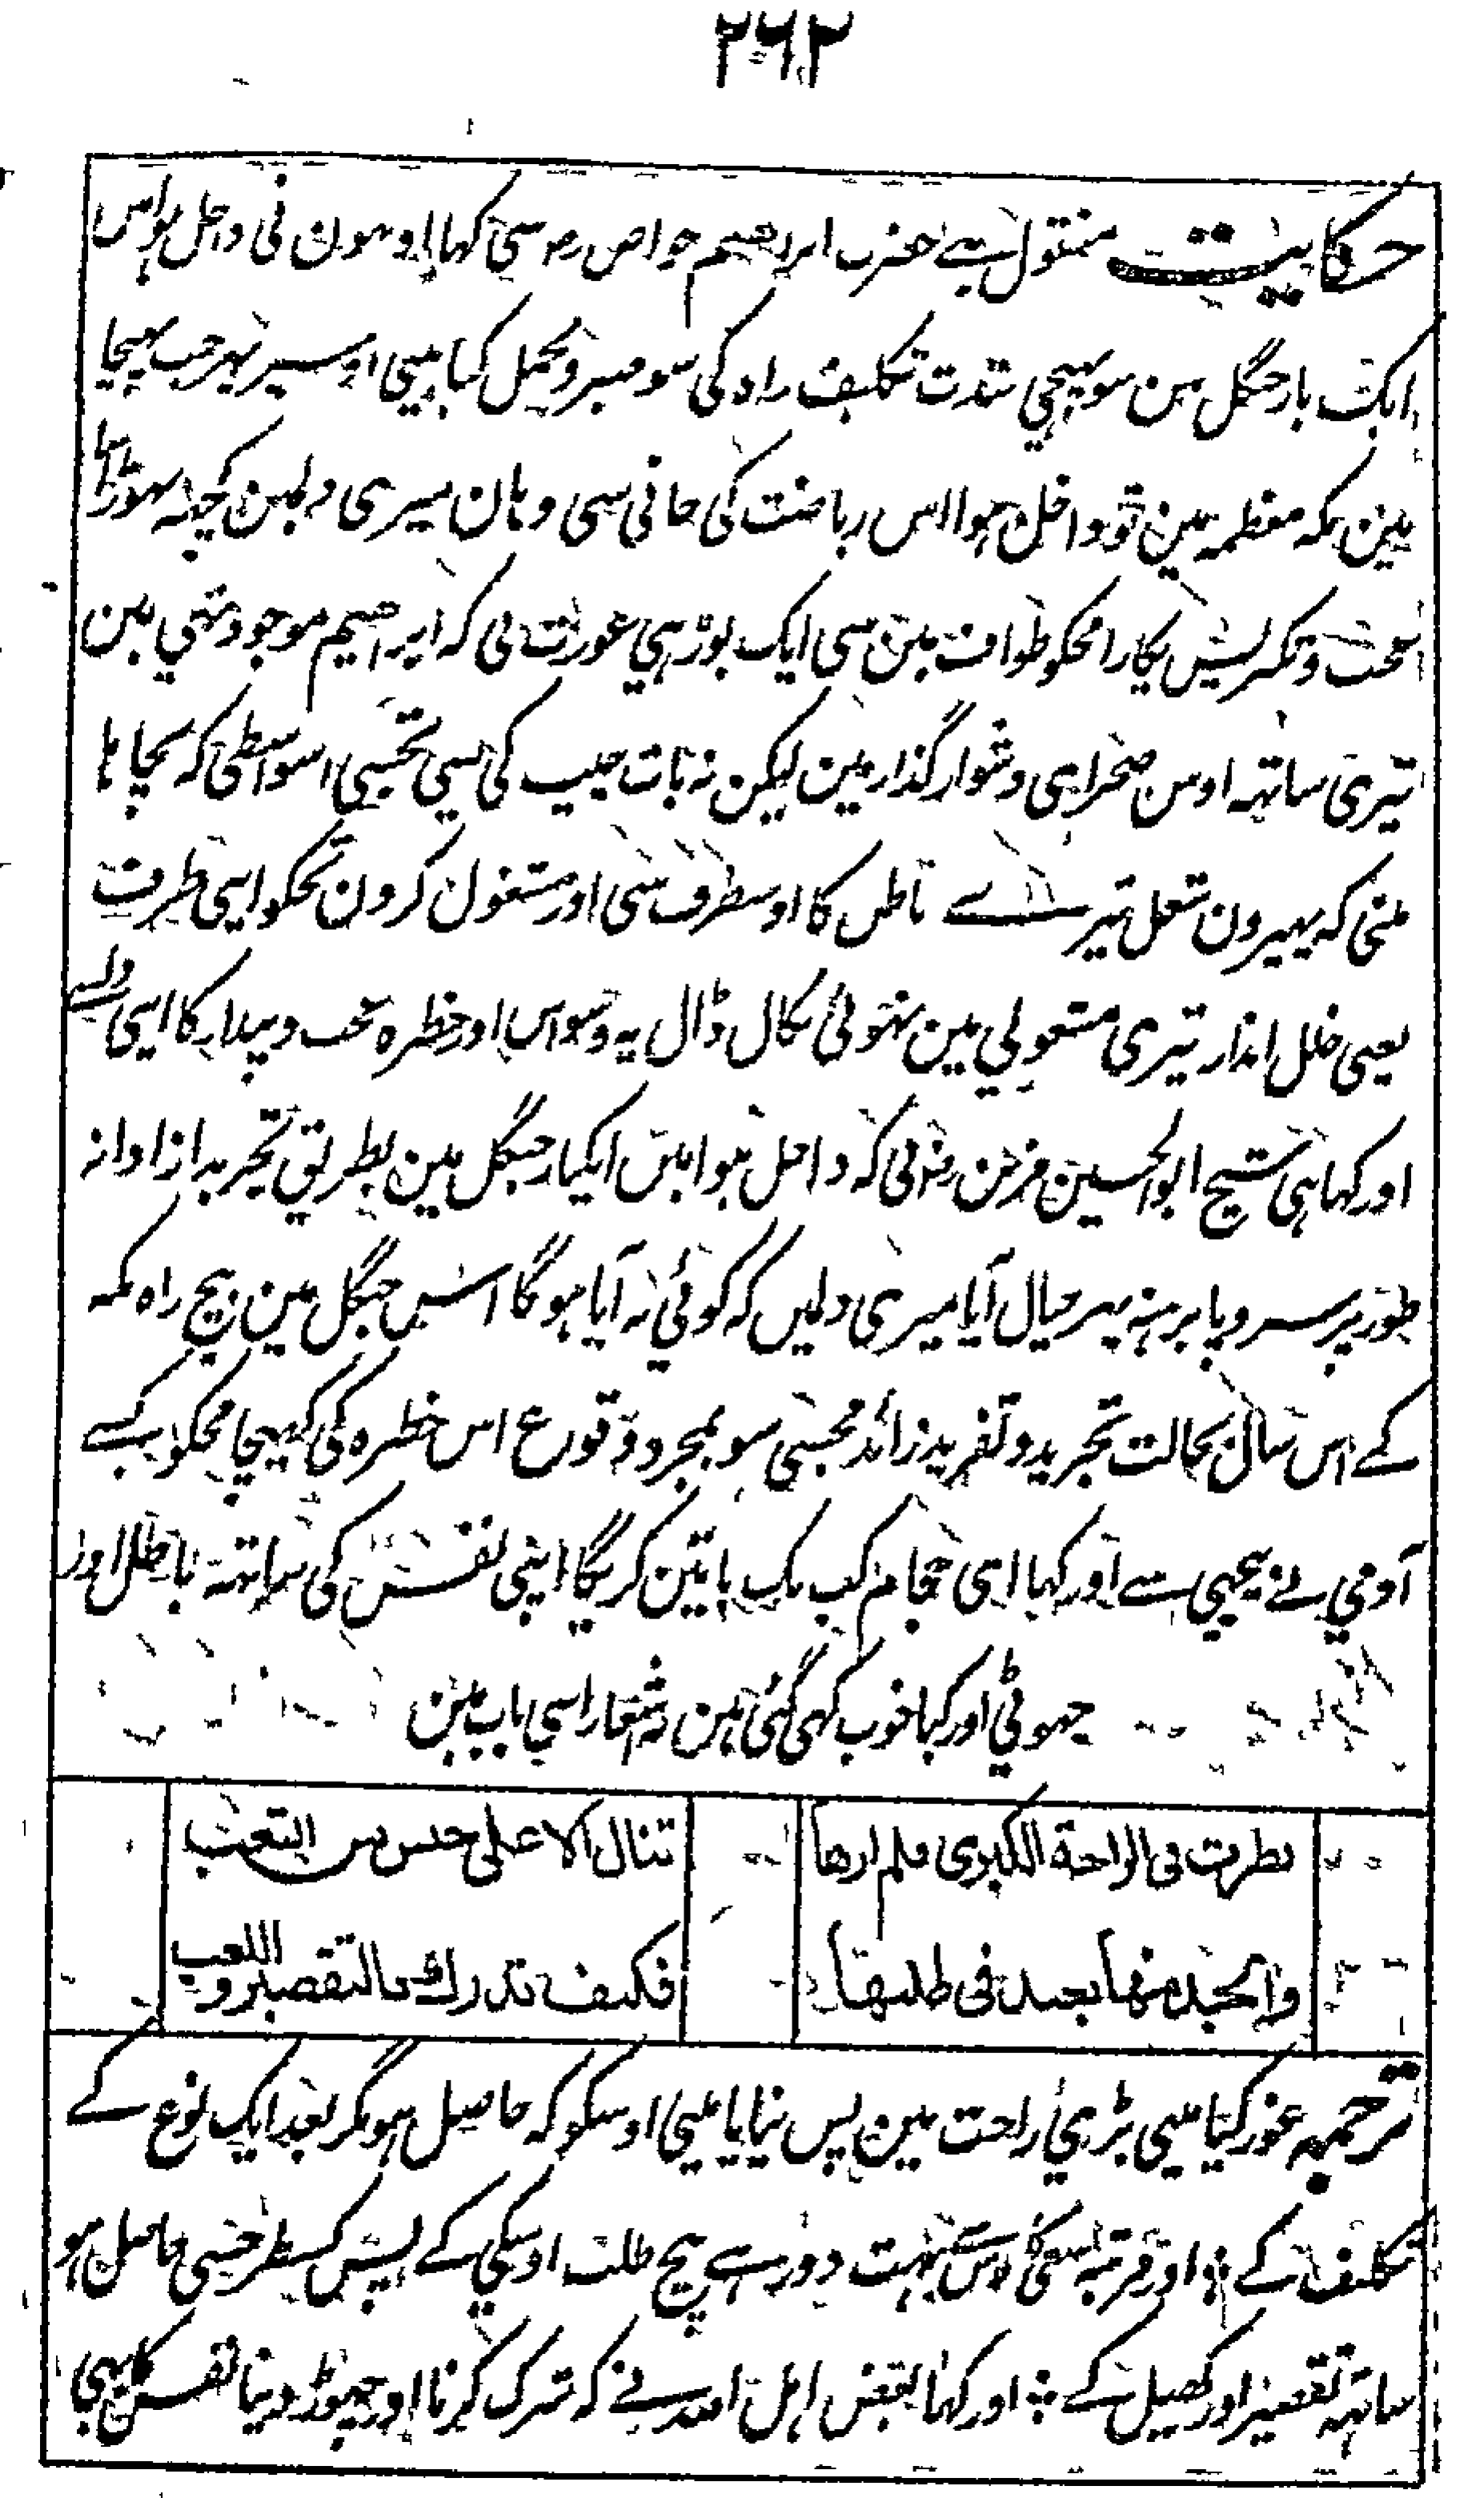 ۲۶۲
حکایت منقول ہے حضرت ابراہیم خواص رہ سی کہا اوہون نی داخل ہوا مین
ایک بار جنگل مین سو پہنچی شدت تکلیف راہ کی سو صبر و تحمل کیا مینی اوسپر پہر جب پہنچا
مین مکہ معظمہ مین تو داخل ہوا اس ریاضت کی جانی سی وہان میری دلمین کچہ تہوڑا سا
عجب و تکبر پس پکارا مجکو طواف مین سی ایک بوڑہی عورت نی کہ ابراہیم موجود تہی مین
تیری ساتہ اوس صحرای دشوار گذار مین لیکن نہ بات چیت کی مینی تجسی اسواسطی کہ نچاہا
مینی کہ پہیرون شغل تیرے باطن کا اوسطرف سی اور مشغول کرون تجکو اپنی طرف
یعنی خلل انداز تیری مشغولی مین نہوئی نکال ڈال یہ وسواس اور خطرہ عجب و پندار کا اپنی دلسے
اور کہا ہی شیخ ابوالحسین مزین رہ نی کہ داخل ہوا مین ایکبار جنگل مین بطریق تجرید ازادانہ
طور پر سر و پا برہنہ پہر خیال آیا میری دلمین کہ کوئی نہ آیا ہوگا اس جنگل مین بیچ راہ مکہ
کے اس سال بحالت تجرید و تفرید زائد مجسی سو بمجرد وقوع اس خطرہ کی کہینچا مجکو کسے
آدمی نے پیچہی سے اور کہا ای حجام کب تک باتین کریگا اپنی نفس کی ساتہ باطل اور
جہوٹی اور کیا خوب کہی گئی ہین اشعار اسی باب مین
نظرت فی الراحة الکبری فلم ارها
تنال الا علی جنس من التعب
والجد منها بعید فی طلبها
فکیف تدرک بالتقصیر و اللعب
ترجمہ غور کیا مینی بڑی راحت مین پس نپایا مینی اوسکو کہ حاصل ہو مگر بعد ایک نوع کے
تکلیف کے ؛ اور مرتبہ سعی کا اوس سے بہت دور ہے بیچ طلب اوسکی کے پس کسطرحسی حاصل ہو
ساتہ تقصیر اور کھیل کے ؛ اور کہا بعض اہل اللہ نے کہ ترک کرنا اور چہوڑ دینا نفس کا بہی